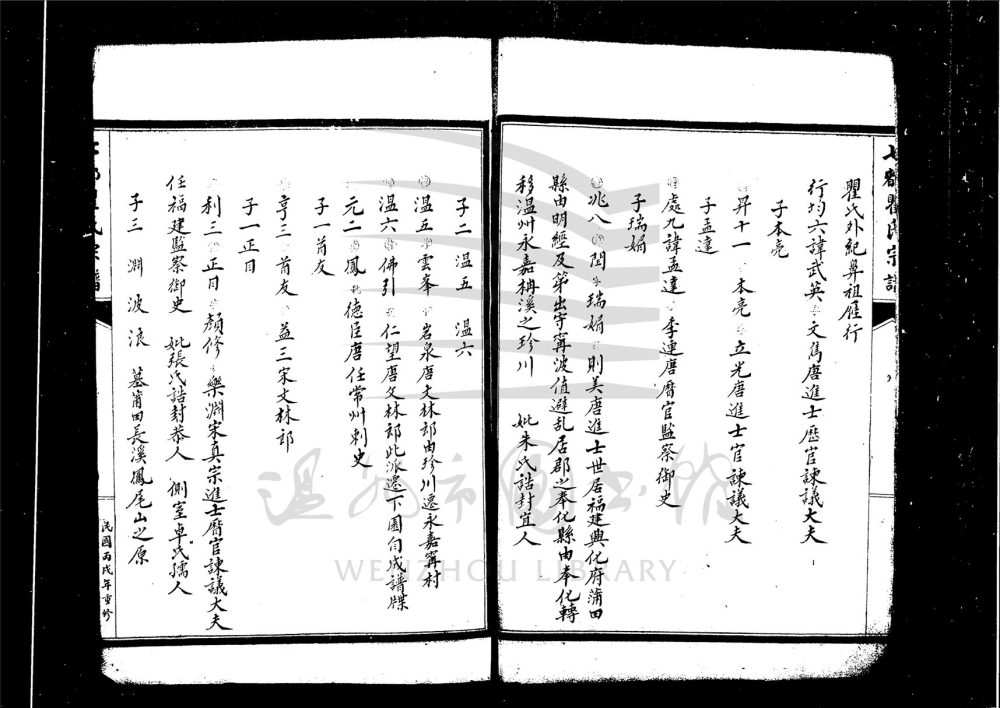 七都瞿氏宗譜
瞿氏外紀鼻祖雁行
行均六諱武英 文雋唐進士歷官諫議大夫
子本亮
昇十一 本亮 立光唐進士官諫議大夫
子孟達
處九諱孟達 季連唐曆官監察御史
子瑞娟
兆八 閏 瑞娟 則美唐進士世居福建興化府蒲田
縣由明經及弟出守寧波值避乱居郡之奉化縣由奉化轉
移温州永嘉柟溪之珍川 妣朱氏誥封宜人
子二 温五 温六
温五 雲峯 岩泉唐文林郎由珍川遷永嘉寗村
温六 佛引 仁望唐文林郎此派遷下園自成譜牒
元二 鳳 德臣唐任常州刺史
子一 首友
亨三 首友 益三宋文林郎
子一 正目
利三 正目 顏修 樂淵宋真宗進士曆官諫議大夫
任福建監察御史 妣張氏誥封恭人 側室卓氏孺人
子三 淵 波 浪 墓莆田長溪鳳尾山之原
民國丙戌年重修
WENZHOU LIBRARY